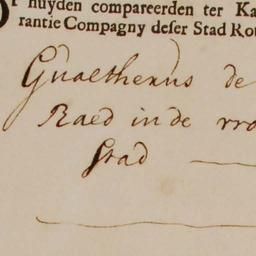 Op huyden compareerden ter Ka
rantie Compagny deser Stad Rot
Gualtherus de
Raed in de vro
Stad